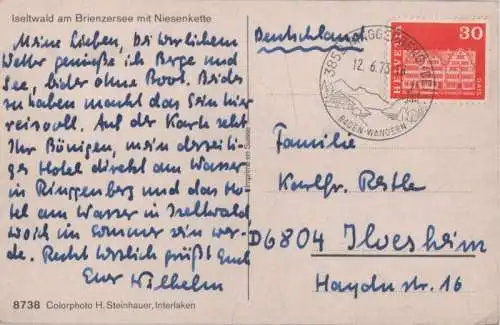 Iseltwald am Brienzersee mit Niesenkette
Meine Lieben, bei herrlichem
Wetter genieße ich Berge und
See, leider ohne Boot. Beides
zu haben macht das Sein hier
reizvoll. Auf der Karte seht
Ihr Bönigen, mein derzeiti-
ges Hotel direkt am Wasser
in Ringgenberg und das Ho-
tel am Wasser in Iseltwald
wo ich im Sommer sein wer-
de. Recht herzlich grüßt Euch
Euer Wilhelm
8738 Colorphoto H. Steinhauer, Interlaken
Imprimé en Suisse
Deutschland
12.6.73
BADEN-WANDERN
HELVETIA
30
Familie
Karlfr. Restle
D 6804 Ilvesheim
Haydnstr. 16